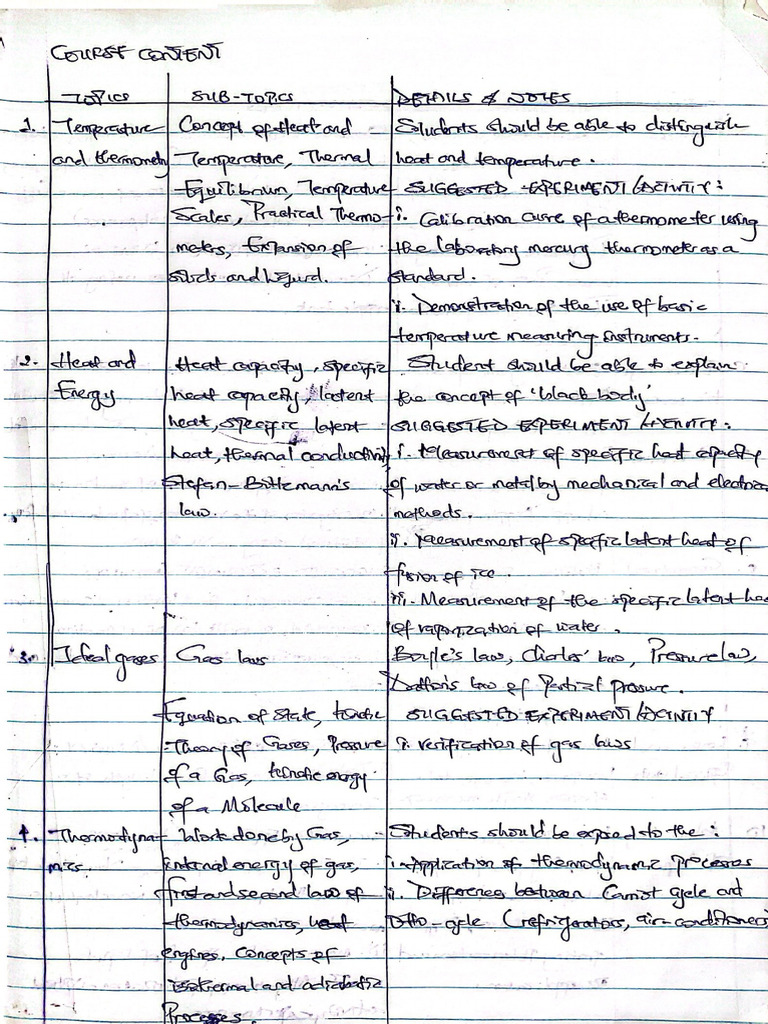 COURSE CONTENT
TOPICS SUB-TOPICS DETAILS & NOTES
1. Temperature Concept of Heat and Students should be able to distinguish
and thermometry Temperature, Thermal heat and temperature.
Equilibrium, Temperature SUGGESTED EXPERIMENT/ACTIVITY:
Scales, Practical Thermo- i. Calibration curve of a thermometer using
meters, Expansion of the laboratory mercury thermometer as a
solids and liquid. standard.
ii. Demonstration of the use of basic
temperature measuring instruments.
2. Heat and Heat capacity, specific Student should be able to explain
Energy heat capacity, latent the concept of 'black body'
heat, specific latent SUGGESTED EXPERIMENT/ACTIVITY:
heat, thermal conductivity i. Measurement of specific heat capacity
Stefan-Boltzmann's of water or metal by mechanical and electrical
law. methods.
ii. Measurement of specific latent heat of
fusion of ice.
iii. Measurement of the specific latent hea
of vaporization of water.
3. Ideal gases Gas laws Boyle's law, Charles' law, Pressure law,
Dalton's law of Partial pressure.
Equation of State, kinetic SUGGESTED EXPERIMENT/ACTIVITY
Theory of Gases, Pressure i. verification of gas laws
of a Gas, kinetic energy
of a Molecule
4. Thermodyna- Work done by Gas, Students should be exposed to the:
mics. internal energy of gas, i. Application of thermodynamic processes
first and second law of ii. Difference between Carnot cycle and
thermodynamics, heat Otto-cycle (refrigerators, air-conditioners
engines, concepts of
isothermal and adiabatic
Processes.